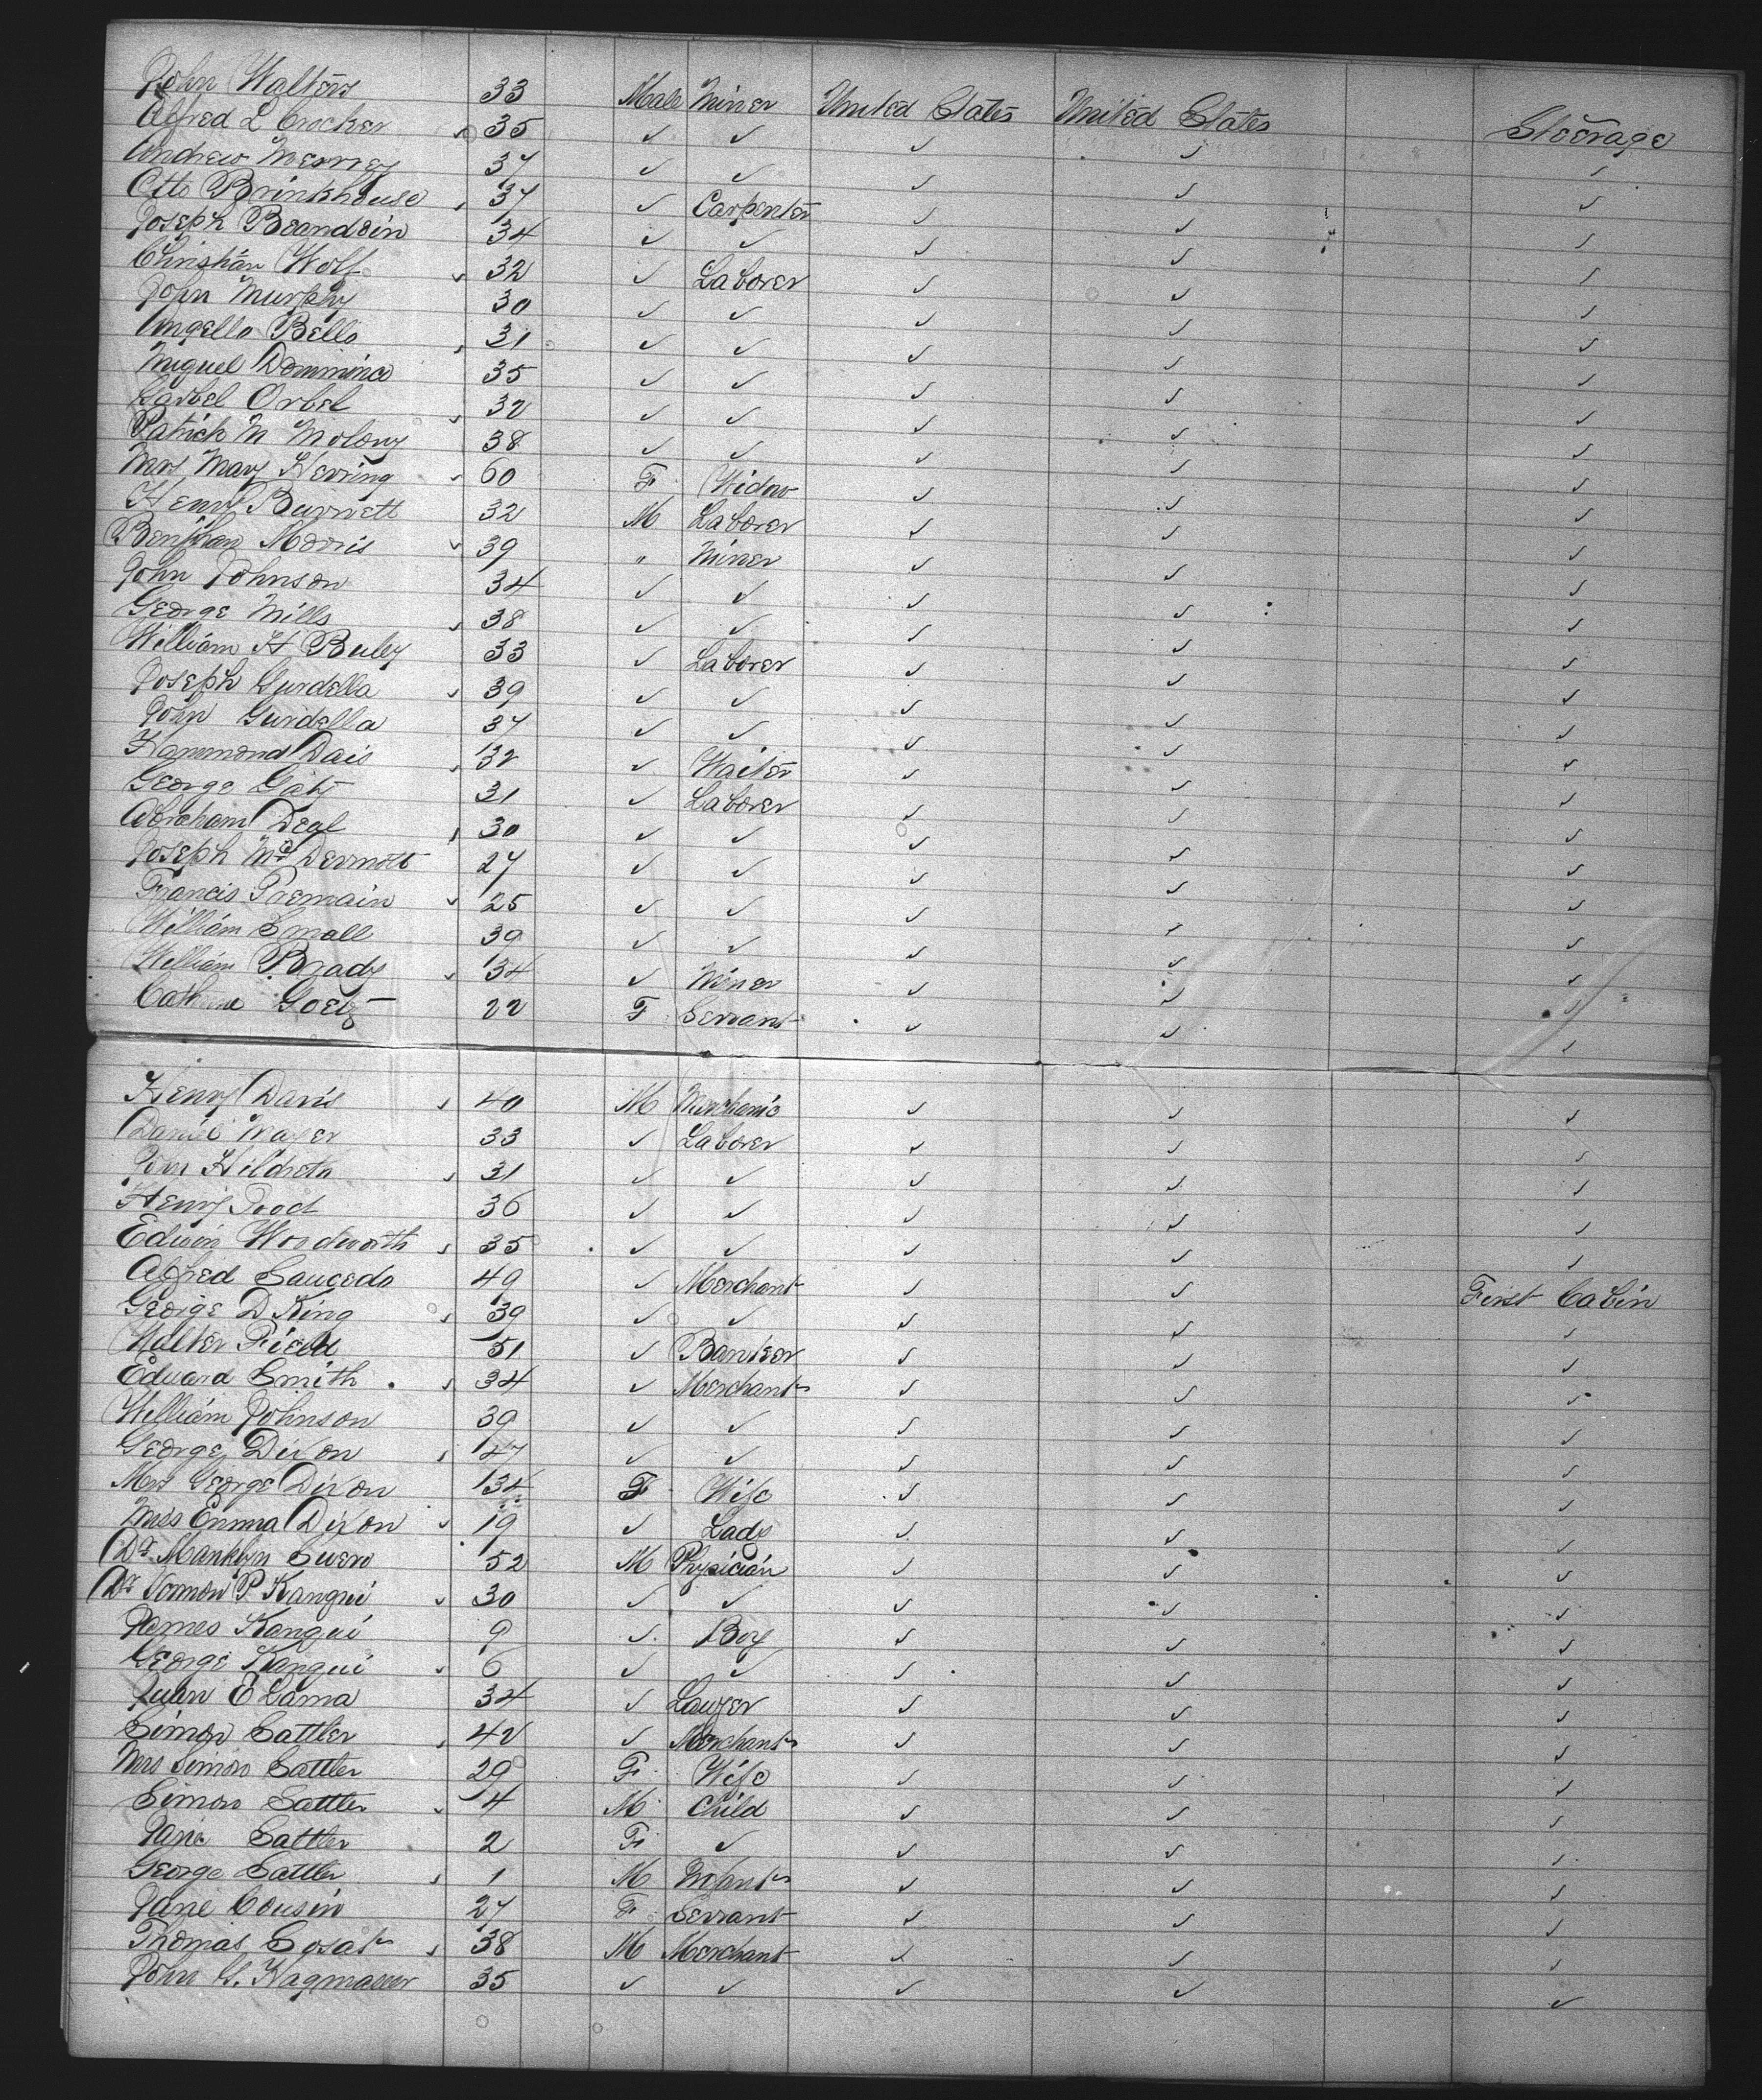 John Walters 33 Male Miner United States United States Steerage
Alfred L Crocker 35 ✓ ✓ ✓ ✓ ✓
Andrew 37 ✓ ✓ ✓ ✓ ✓
Otto Brinkhouse 37 ✓ Carpenter ✓ ✓ ✓
Joseph Beandein 34 ✓ ✓ ✓ ✓ ✓
Christian Wolf 32 ✓ Laborer ✓ ✓ ✓
John Murphy 30 ✓ ✓ ✓ ✓ ✓
Angello Bello 31 ✓ ✓ ✓ ✓ ✓
Miguel Dominica 35 ✓ ✓ ✓ ✓ ✓
Garbel Orbel 32 ✓ ✓ ✓ ✓ ✓
Patrick M Molony 38 ✓ ✓ ✓ ✓ ✓
Mrs Mary Herring 60 F Widow ✓ ✓ ✓
Henry Burnett 32 M Laborer ✓ ✓ ✓
Morris 39 " Miner ✓ ✓ ✓
John Johnson 34 ✓ ✓ ✓ ✓ ✓
George Mills 38 ✓ ✓ ✓ ✓ ✓
William H Buley 33 ✓ Laborer ✓ ✓ ✓
Joseph Gurdella 39 ✓ ✓ ✓ ✓ ✓
John Gurdella 37 ✓ ✓ ✓ ✓ ✓
Hammond Dais 32 ✓ Waiter ✓ ✓ ✓
George 31 ✓ Laborer ✓ ✓ ✓
Abraham Degl 30 ✓ ✓ ✓ ✓ ✓
Joseph McDermott 27 ✓ ✓ ✓ ✓ ✓
Francis Premain 25 ✓ ✓ ✓ ✓ ✓
William Small 39 ✓ ✓ ✓ ✓ ✓
William Brady 34 ✓ Miner ✓ ✓ ✓
Cathrine Goetz 22 F Servant ✓ ✓ ✓
Henry Davis 40 M Merchanic ✓ ✓ ✓
Daniel Mayer 33 ✓ Laborer ✓ ✓ ✓
John Hildreth 31 ✓ ✓ ✓ ✓ ✓
Henry Rood 36 ✓ ✓ ✓ ✓ ✓
Edwin Woodworth 35 ✓ ✓ ✓ ✓ ✓
Alfred Saucedo 49 ✓ Merchant ✓ ✓ First Cabin
George D King 39 ✓ ✓ ✓ ✓ ✓
Walter Field 51 ✓ Banker ✓ ✓ ✓
Eduard Smith 34 ✓ Merchant ✓ ✓ ✓
William Johnson 39 ✓ ✓ ✓ ✓ ✓
George Dixon 47 ✓ ✓ ✓ ✓ ✓
Mrs George Dixon 34 F Wife ✓ ✓ ✓
Miss Emma Dixon 19 ✓ Lady ✓ ✓ ✓
Dr Manklyn Suero 52 M Physician ✓ ✓ ✓
Dr P Kanqui 30 ✓ ✓ ✓ ✓ ✓
James Kanqui 9 ✓ Boy ✓ ✓ ✓
George Kanqui 6 ✓ ✓ ✓ ✓ ✓
Juan E Lama 34 ✓ Lawyer ✓ ✓ ✓
Simon Sattler 42 ✓ Merchant ✓ ✓ ✓
Mrs Simon Sattler 29 F Wife ✓ ✓ ✓
Simon Sattler 4 M Child ✓ ✓ ✓
Jane Sattler 2 F ✓ ✓ ✓ ✓
George Sattler 1 M Infant ✓ ✓ ✓
Jane Cousin 27 F Servant ✓ ✓ ✓
Thomas 38 M Merchant ✓ ✓ ✓
John G. Hagmauer 35 ✓ ✓ ✓ ✓ ✓